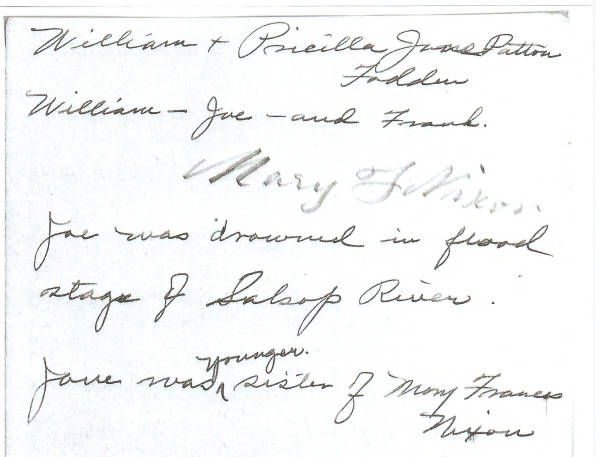 William + Pricilla Jane Patton
Fadden
William – Joe – and Frank.
Mary F Nixon
Joe was drowned in flood
stage of Salsop River.
Jane was younger sister of Mary Frances
Nixon